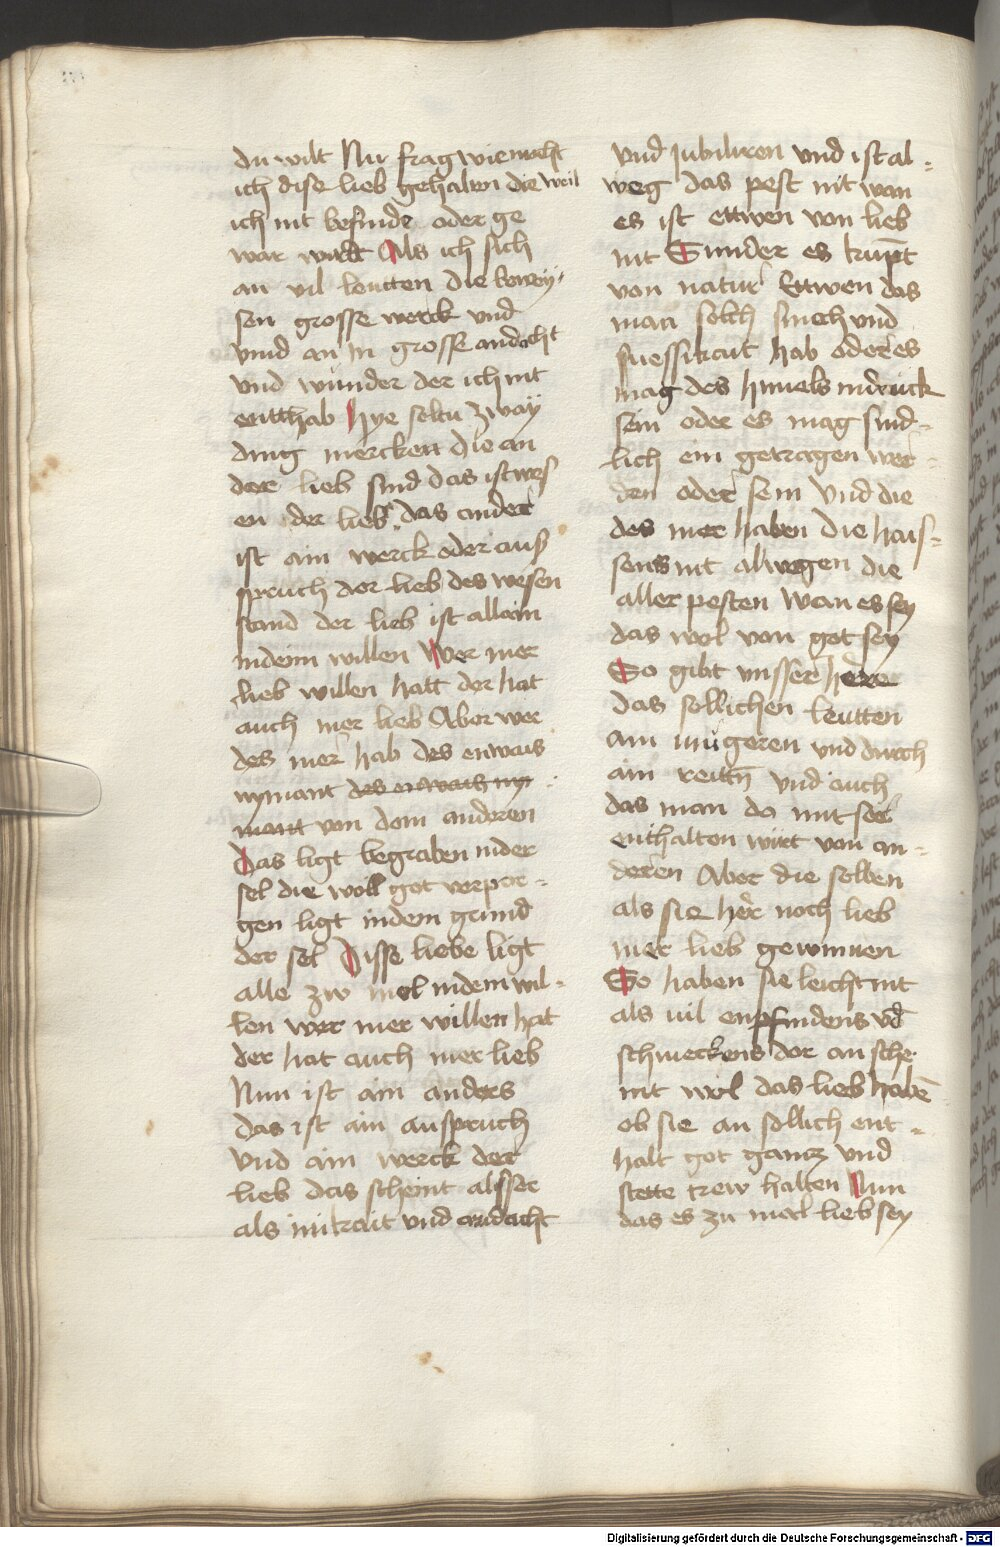 du wilt Nu frag wie mocht
ich dise lieb gehalten die weil
ich nit befinde oder ge
war wirdt Als ich sich
an vil leutten die bewey-
sen grosse werck und
vnnd an in grosse andacht
vnd wunder der ich nit
entthab hye soltu zway
ding mercken die an
der lieb sind das ist wes
en der lieb das ander
ist ain werck oder aus
spruch der lieb des wesen
stand der lieb ist allain
indem willen Wer mer
lieb willen hatt der hat
auch mer lieb Aber wer
des mer hab des enwais
nymant des enwais ny
mant von dem anderen
Das ligt begraben in der
sel die weil got verpor-
gen ligt indem grund
der sel Disse liebe ligt
alle zw mol indem wil-
len wer mer willen hat
der hat auch mer lieb
Nun ist ain anders
das ist ain auspruch
vnd ain werck der
lieb das scheint alsser
als inikait vnd andacht
vnd jubiliren vnd ist al-
weg das pest nit wan
es ist ettwen von lieb
nit Sunder es kumpt
von natur Ettwen das
man solch smech vnd
suessikait hab oder es
mag des himels indruck
sein oder es mag sind-
lich ein getragen wer-
den oder sein Vnd die
des mer haben die hais-
sens nit alwegen die
aller pesten Wan es sey
das wol von got sey
So gibt vnsser herre
das sollichen leutten
am mügeren vnd durch
ain reittn vnd auch
das man do mit ser
enthalten wirt von an-
deren Aber die selben
als sie her noch lieb
mer lieb gewinnen
So haben sie leicht nit
als vil enpfindens vnd
schmeckens dor an sche
int wol das lieb haben
ob sie an sollich ent-
halt got gantz vnd
stette trew halten Nun
das es zu mol lieb sey
Digitalisierung gefördert durch die Deutsche Forschungsgemeinschaft - DFG